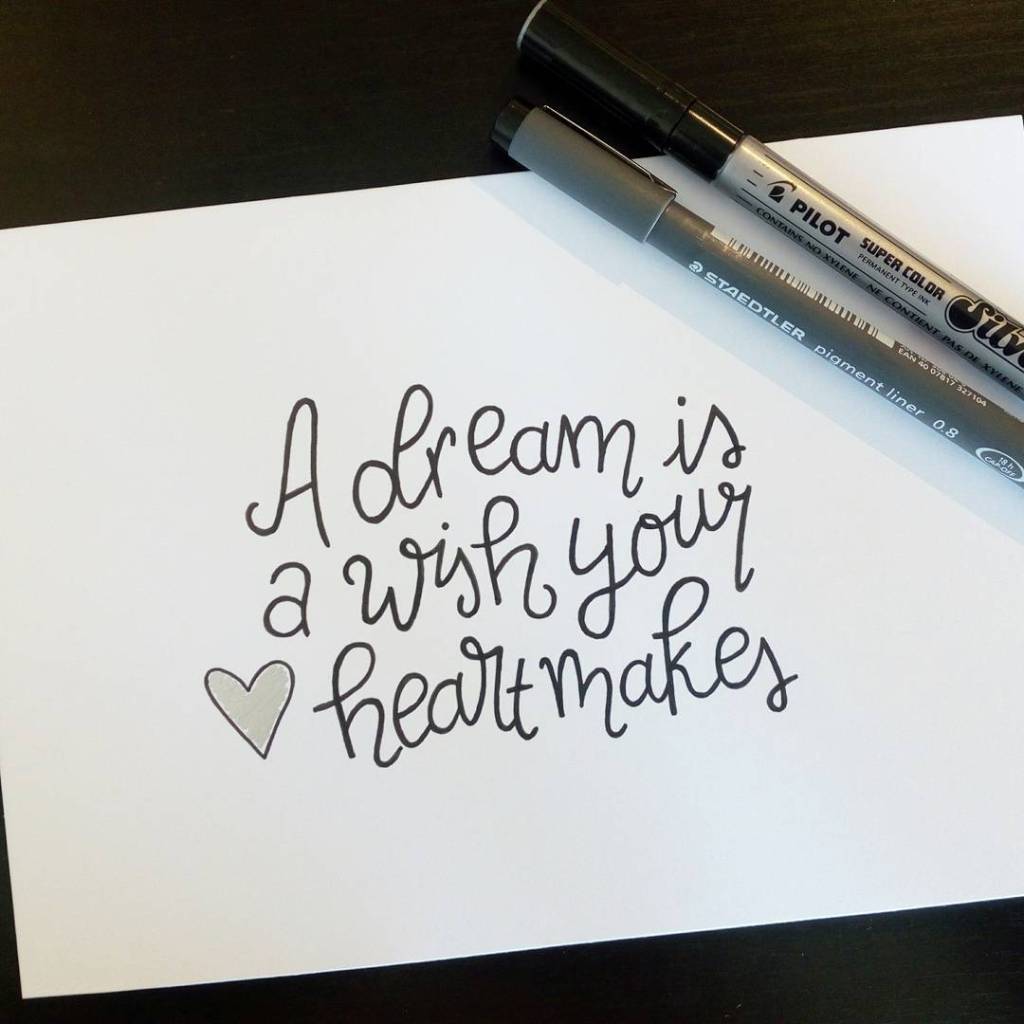 A dream is
a wish your
heart makes
PILOT SUPER COLOR
PERMANENT TYPE INK
CONTAINS NO XYLENE NE CONTIENT PAS DE XYLENE
STAEDTLER pigment liner 0.8
EAN 40 07817 327104
18 h
CAP-OFF